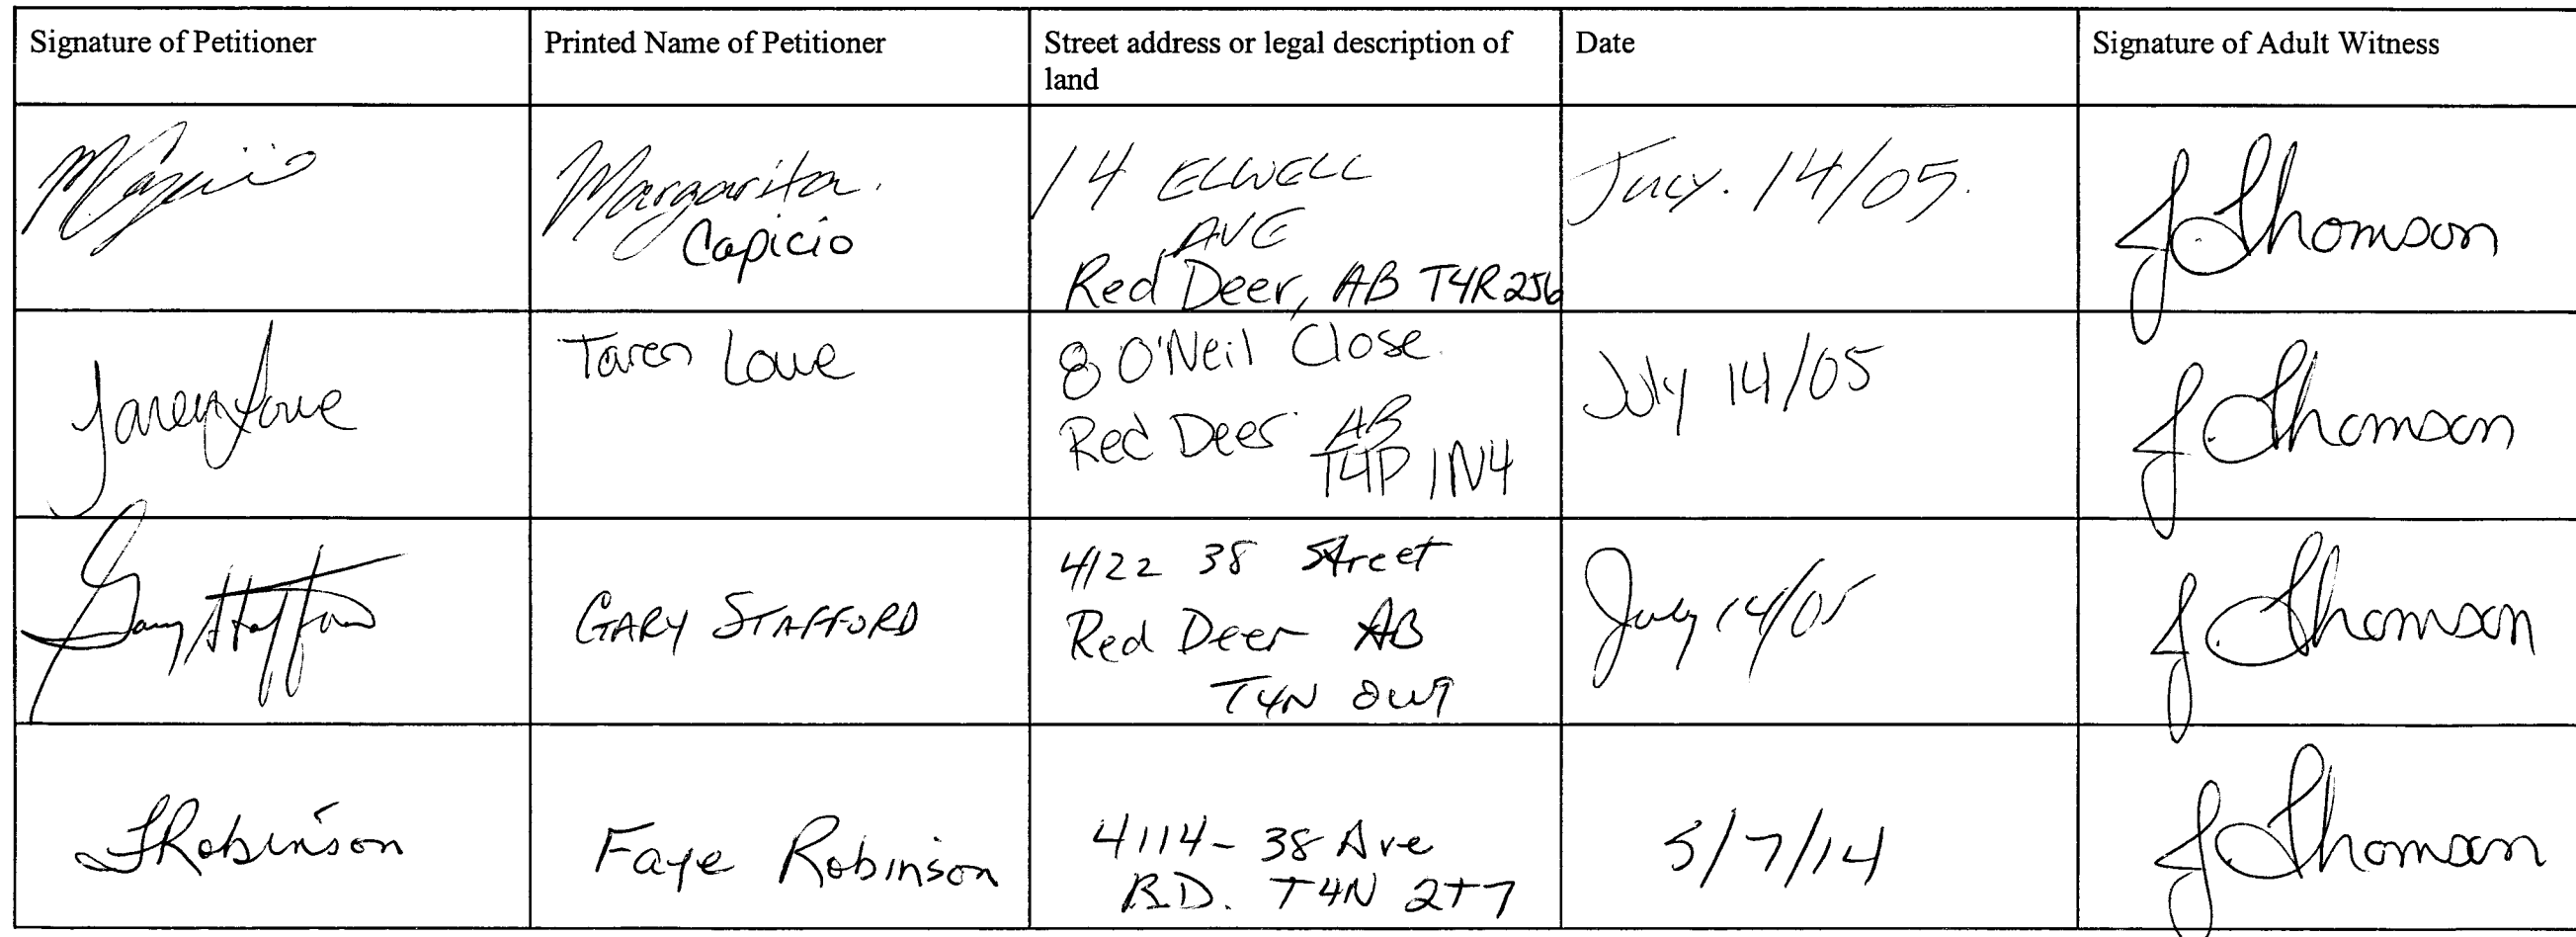 Signature of Petitioner
Printed Name of Petitioner
Street address or legal description of
land
Date
Signature of Adult Witness
MCapicio
Margarita.
Capicio
14 ELWELL
AVE
Red Deer, AB T4R 2S6
July. 14/05.
J Thomson
Taren Lowe
Taren Lowe
8 O'Neil Close
Red Deer AB
T4P 1N4
July 14/05
J Thomson
Gary Stafford
GARY STAFFORD
4122 38 Street
Red Deer AB
T4N 0W9
July 14/05
J Thomson
FRobinson
Faye Robinson
4114- 38 Ave
R.D. T4N 2T7
5/7/14
J Thomson